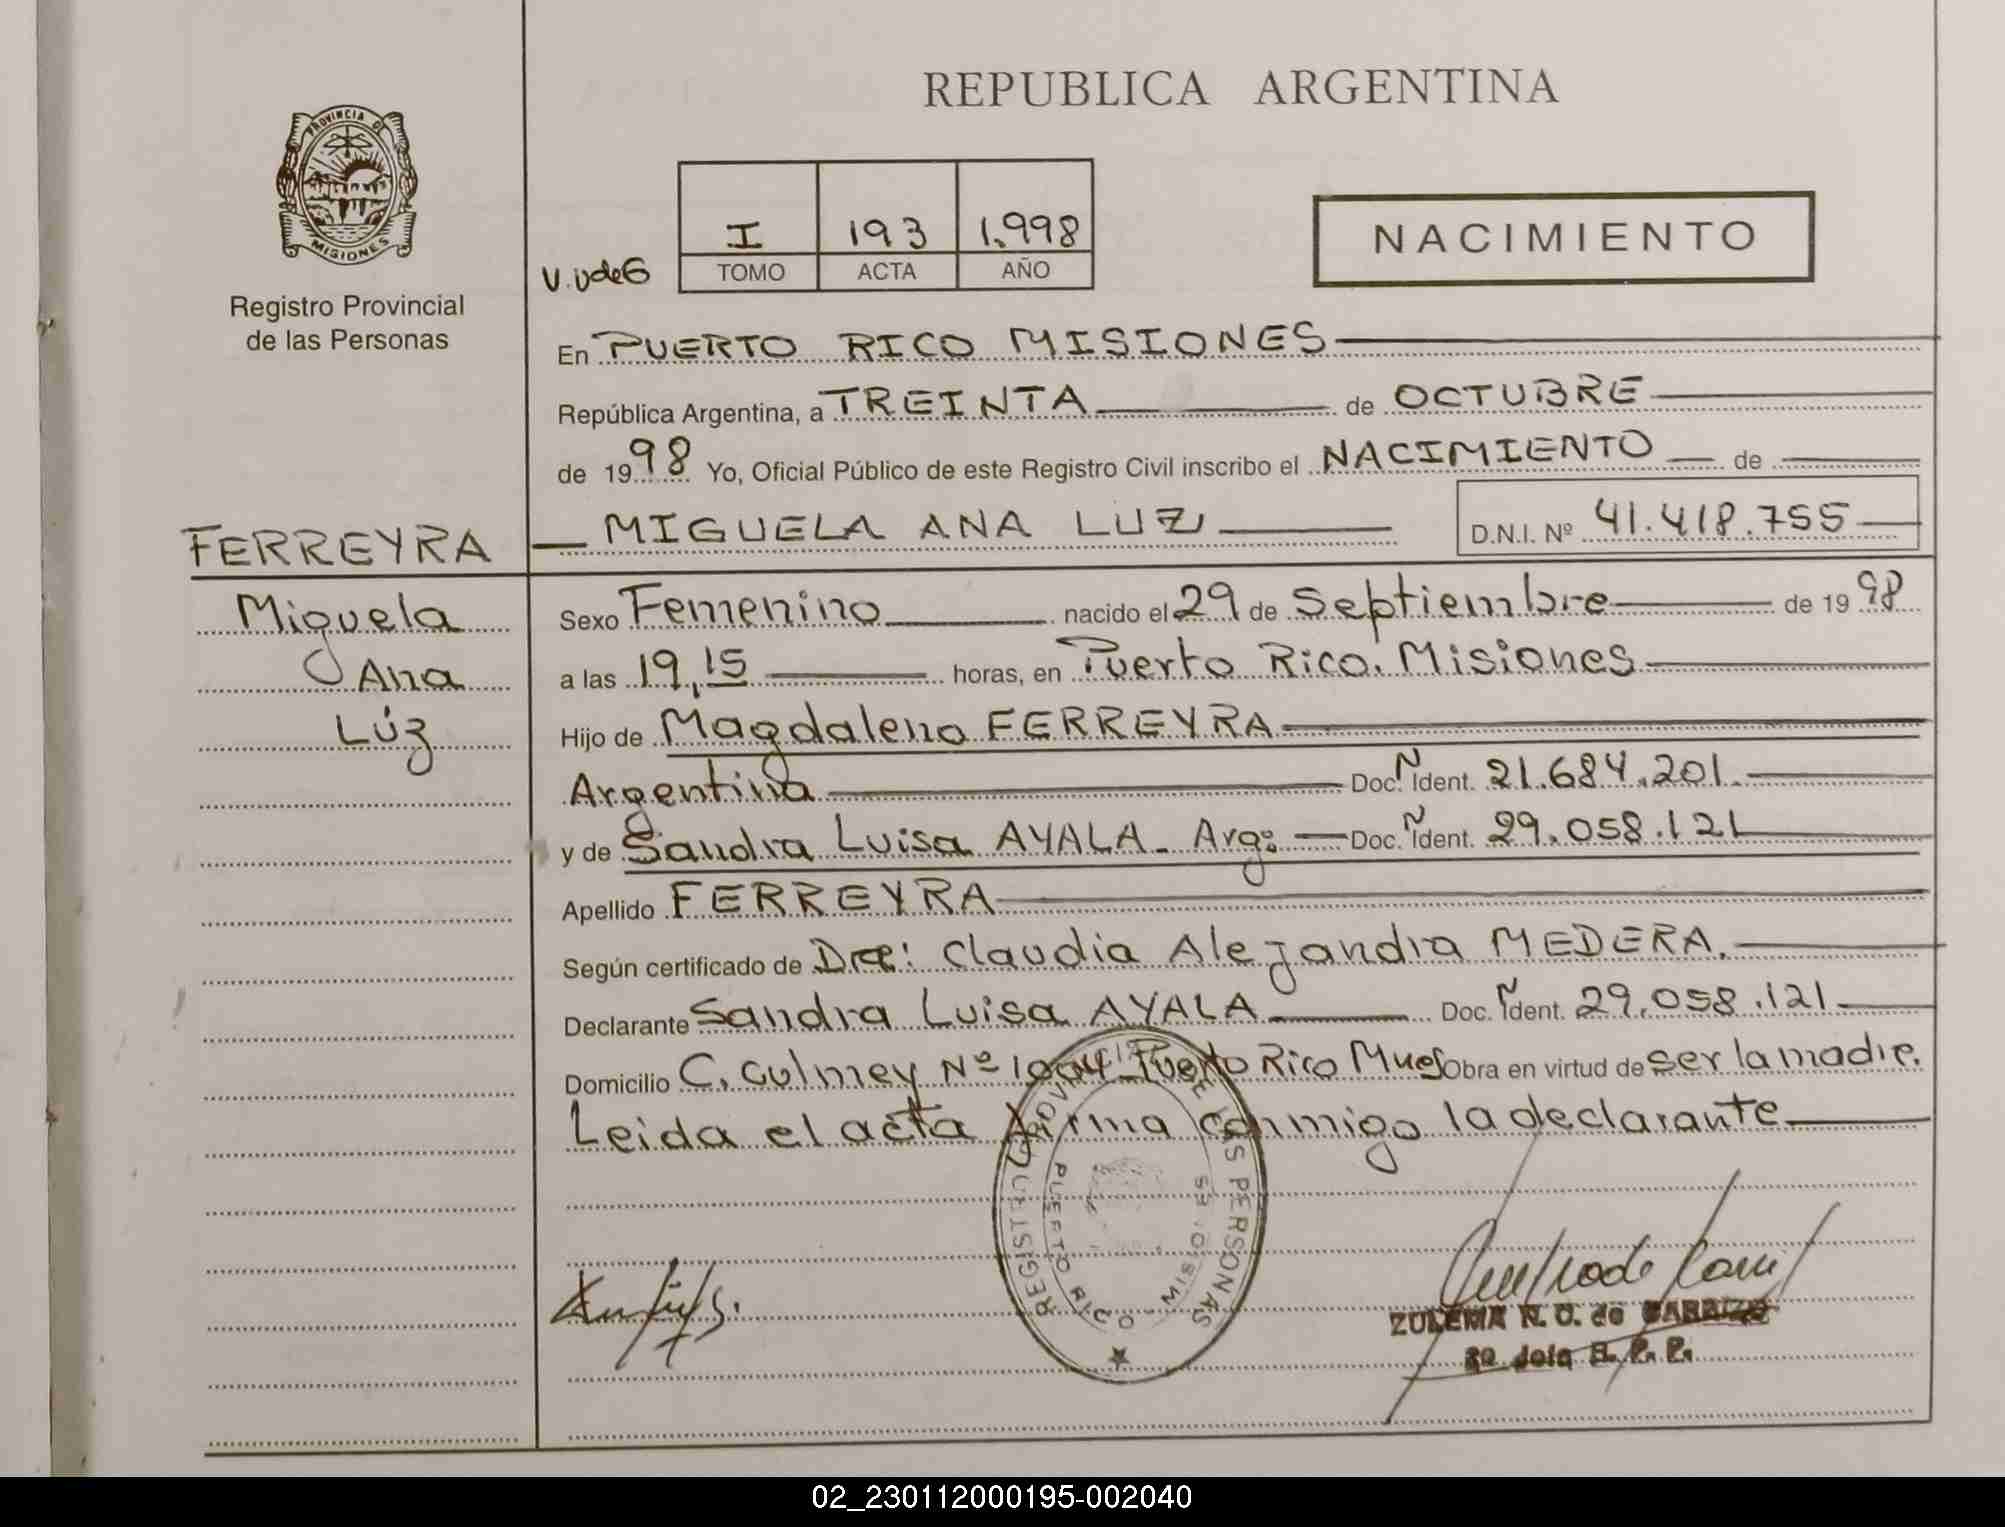 REPUBLICA ARGENTINA
PROVINCIA DE
MISIONES
Registro Provincial
de las Personas
V. Vde6
I 193 1.998
TOMO ACTA AÑO
NACIMIENTO
En PUERTO RICO MISIONES
República Argentina, a TREINTA de OCTUBRE
de 1998 Yo, Oficial Público de este Registro Civil inscribo el NACIMIENTO de
FERREYRA MIGUELA ANA LUZ D.N.I. Nº 41.418.755
Miguela
Ana
Lúz
Sexo Femenino nacido el 29 de Septiembre de 1998
a las 19,15 horas, en Puerto Rico. Misiones
Hijo de Magdaleno FERREYRA
Argentina Doc. Ident. 21.684.201.
y de Sandra Luisa AYALA - Arg: Doc. Ident. 29.058.121
Apellido FERREYRA
Según certificado de Dra: Claudia Alejandra MEDERA.
Declarante Sandra Luisa AYALA Doc. Ident. 29.058.121
Domicilio C. Culmey Nº 1004 Puerto Rico Mnes Obra en virtud de ser la madre.
Leida el acta firma conmigo la declarante
REGISTRO PROVINCIAL DE LAS PERSONAS
PUERTO RICO - MISIONES
ZULEMA N. O. de
R. P. P.
02_230112000195-002040